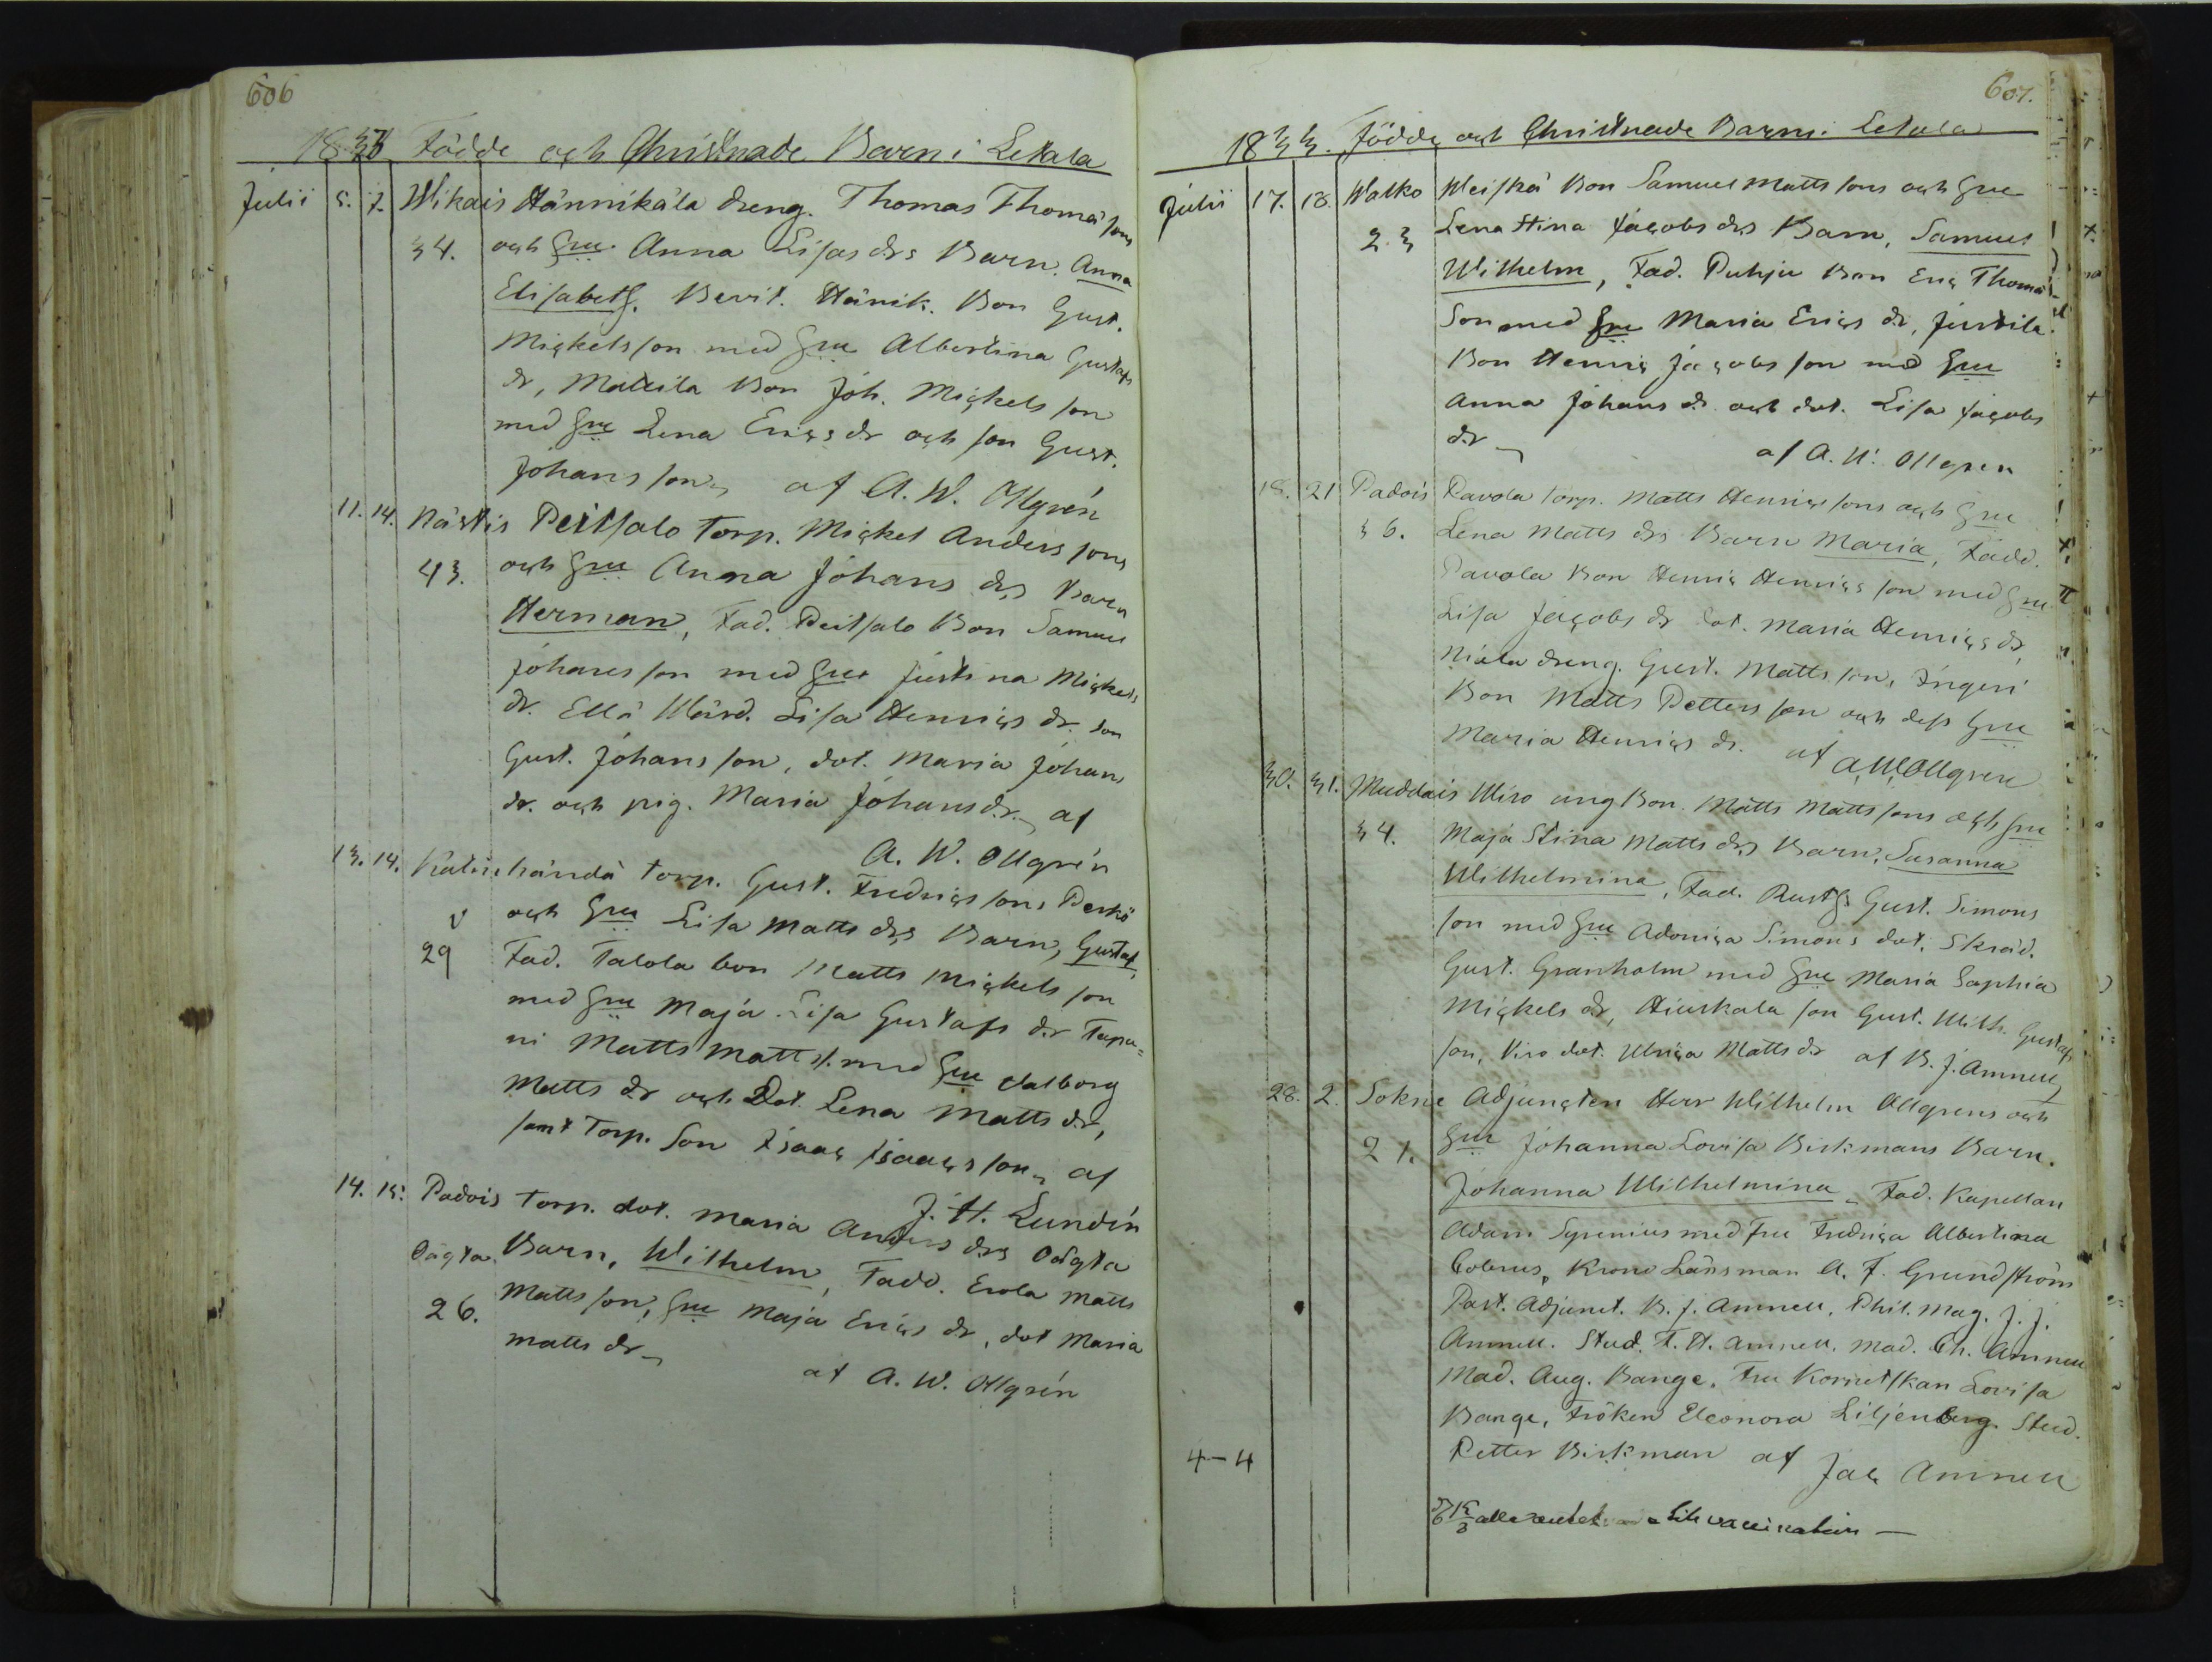 606
1833 Födde och Christnade Barn i Letala
Julii 5. 7. Wikais Hännikäla dreng. Thomas Thomæsons
34. och Hu Anna Lisas drs Barn. Anna
Elisabeth. Bevit. Hänik. Bon Gust.
Mickelsson med Hu Albertina Gustafs
dr, Mattila Bon Joh. Mickelsson
med Hu Lena Erics dr och son Gust.
Johansson, af A. W. Ollgrén
11. 14. Nästis Peitsalo Torp. Mickel Anderssons
43. och Hu Anna Johans drs Barn
Herman, Fad. Peitsalo Bon Samuel
Johansson med Hu Justina Mickels
dr. Ellä Wärd. Lisa Henrics dr. son
Gust. Johansson, dot. Maria Johans
dr. och pig. Maria Johansdr. af
A. W. Ollgrén
13. 14. Torp. Gust. Fredricsons
v och Hu Lisa Matts drs Barn, Gustaf,
29 Fad. Talola bon Matts Mickelsson
med Hu Maja Lisa Gustafs dr Tapa=
ni Matts Mattss. med Hu Valborg
Matts dr och Dot. Lena Matts dr,
samt Torp. Son Isaac Isaacsson, af
J. H. Lundén
14. 15. Padois Torp. dot. Maria Anders drs Oägta
Oägta. Barn, Wilhelm, Fadd. Erola Matts
26. Mattsson, Hu Maja Erics dr, dot Maria
Matts dr
af A. W. Ollgrén
607.
1833. Födde och Christnade Barn i Letala
Julii 17. 18. Walko Weiskä Bon Samuel Mattssons och Hu
23 Lena Stina Jacobs drs Barn, Samuel
Wilhelm, Fad. Puhju Bon Eric Thomæ
Son med Hu Maria Erics dr, Juvila
Bon Henric Jacobsson med Hu
Anna Johans dr och dot. Lisa Jacobs
dr
af A. W. Ollgren
18. 21 Padois Pavola torp. Matts Henricssons och Hu
36. Lena Matts drs Barn Maria, Fadd.
Pavola Bon Henric Henricsson med Hu
Lisa Jacobs dr dot. Maria Henrics dr,
Niäla dreng. Gust. Mattsson, Ingeri
Bon Matts Pettersson och dess Hu
Maria Henrics dr. af A. W. Ollgren
30. 31. Muddais Wiro ung Bon. Matts Mattssons och Hu
34. Maja Stina Matts drs Barn, Susanna
Wilhelmina, Fad. Rusth Gust. Simons
son med Hu Adonica Simons dot. Skräd.
Gust. Granholm med Hu Maria Sophia
Mickels dr, Hiuskala son Gust. Wilh. Gustafs
son, Viro dot. Ulrica Matts dr af B. J. Amnell
28. 2. Sokne Adjuncten Herr Wilhelm Ollgrens och
21. Hu Johanna Lovisa Birkmans Barn.
Johanna Wilhelmina. Fad. Kapellan
Adam Syrenius med Fru Fredrica Albertina
Krono Länsman A. F. Grundström
Past. Adjunct. B. J. Amnell, Phil. Mag. J. J.
Amnell. Stud. F. H. Amnell, Mad. Ch. Amnell
Mad. Aug. Bange. Fru Kornetskan Lovisa
Bange, Fröken Eleonora Liljenberg. Stud.
Petter Birkman af Jac Amnell
4-4